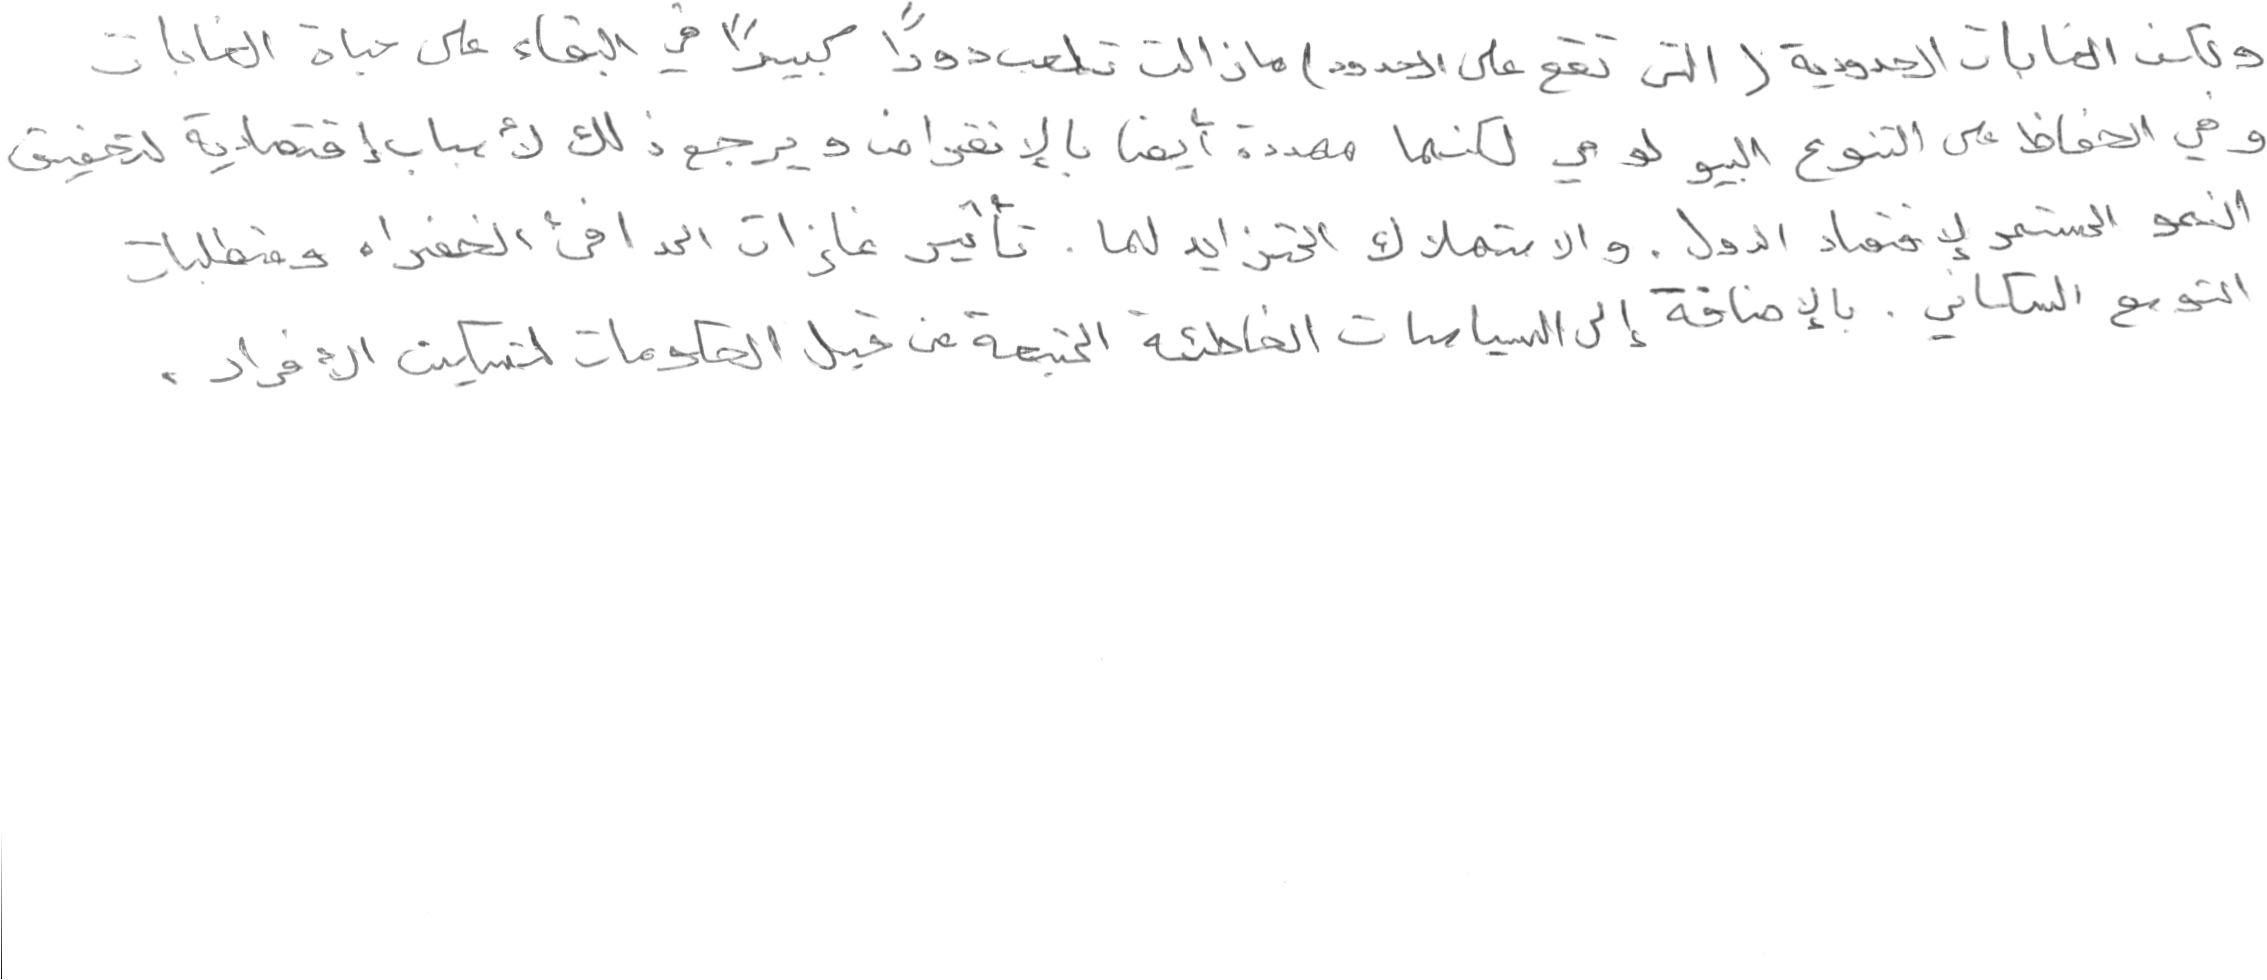 ولكن الغابات الحدودية ( التى تقع على الحدود) مازالت تلعب دورًا كبيرًا في البقاء على حياة الغابات
وفي الحفاظ على التنوع البيولوجي لكنها مهددة أيضا بالإنقراض ويرجع ذلك لأسباب إقتصادية لتحقيق
النمو المستمر لإقتصاد الدول . والاستهلاك المتزايد لها . تأثير غازات الدافئ الخضراء ومتطلبات
التوسع السكاني . بالإضافة إلى السياسات الخاطئة المتبعة من قبل الحكومات لتسكين الأفراد .